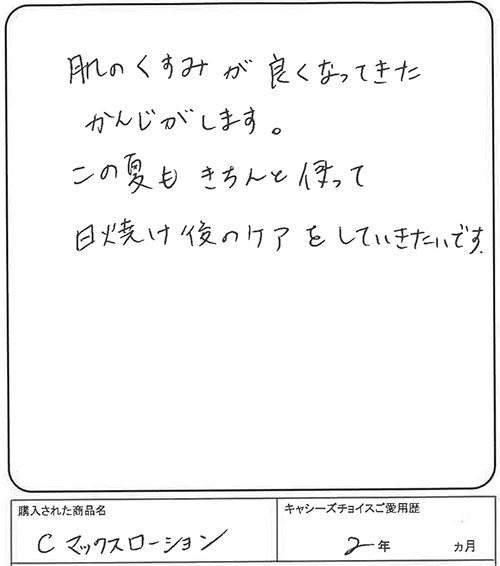 肌のくすみが良くなってきた
かんじがします。
この夏もきちんと使って
日焼け後のケアをしていきたいです.
購入された商品名
C マックスローション
キャシーズチョイスご愛用歴
2年 カ月